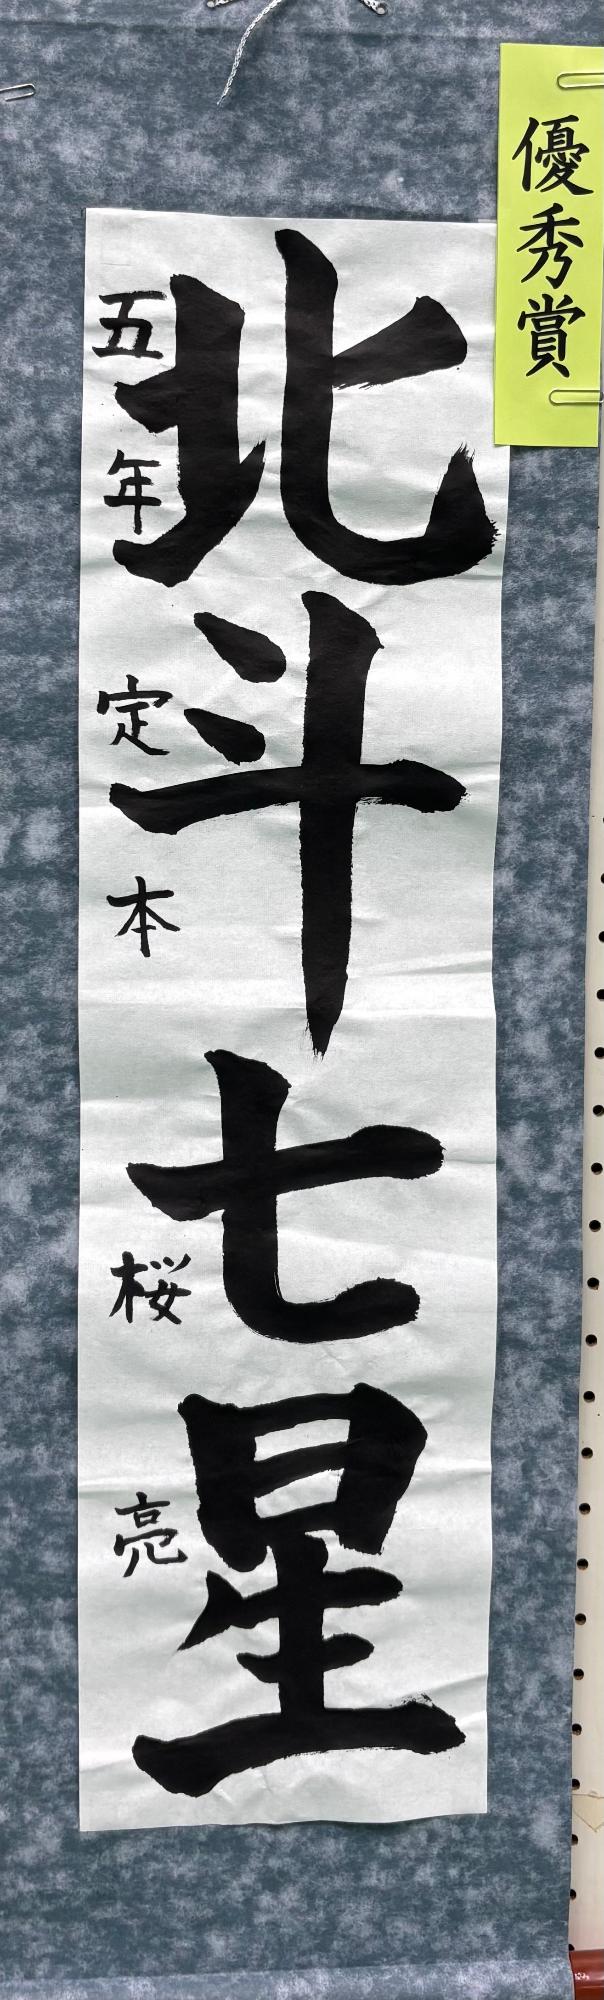 優秀賞
北斗七星
五年 定本 桜亮